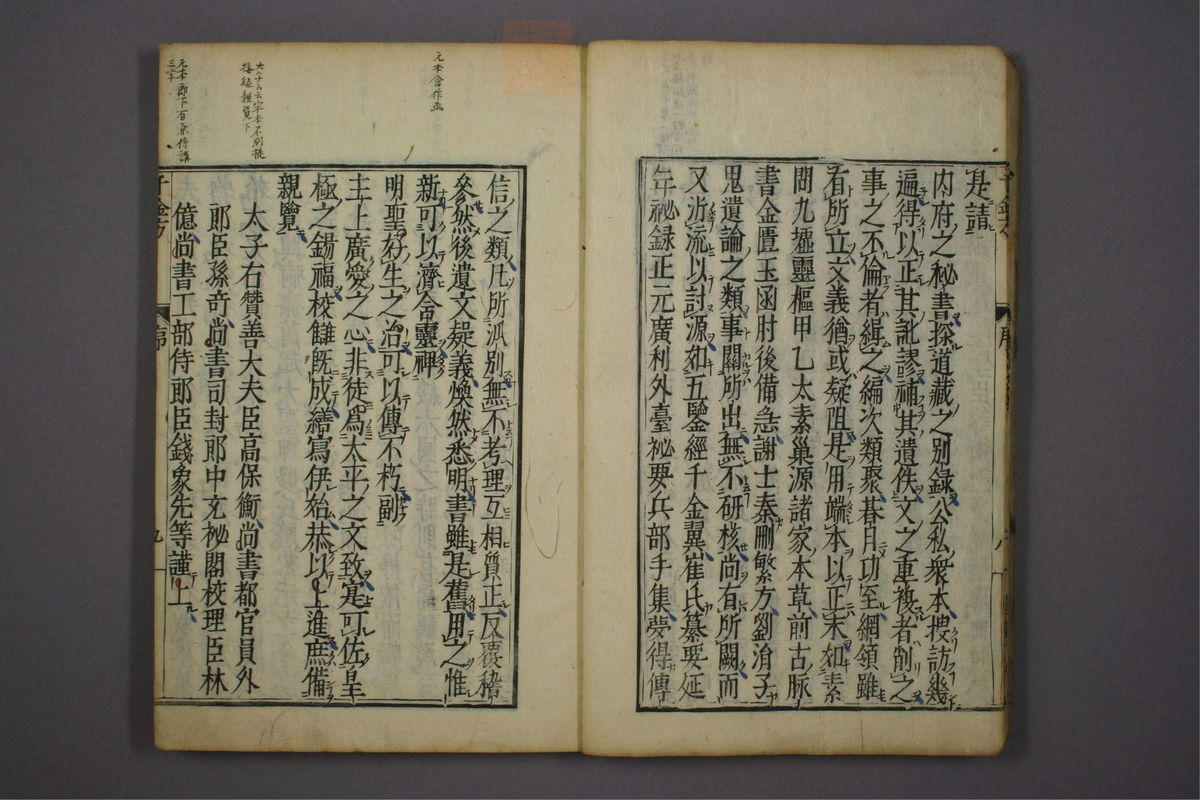 是請
內府之秘書探道藏之別錄公私衆本搜訪幾
遍得以正其訛謬補其遺佚文之重複者削之
事之不倫者緝之編次類聚朞月功至綱領雖
有所立文義猶或疑阻是用端本以正末如素
問九墟靈樞甲乙太素巢源諸家本草前古脉
書金匱玉函肘後備急謝士秦刪繁方劉涓子
鬼遺論之類事關所出無不研核尚有所闕而
又泝流以討源如五鑒經千金翼崔氏纂要延
年祕錄正元廣利外臺祕要兵部手集夢得傳
信之類凡所派別無不考理互相質正反覆稽
參然後遺文疑義煥然悉明書雖是舊用之惟
新可以濟含靈裨
明聖好生之治可以傳不朽副
主上廣愛之心非徒爲太平之文致寔可佐皇
極之錫福校讎旣成繕寫伊始恭以上進庶備
親覽
太子右贊善大夫臣高保衡尚書都官員外
郎臣孫竒尚書司封郎中充祕閣校理臣林
億尚書工部侍郎臣錢象先等謹上
千金方
序
九
元本含作函
接經親覽下
元本即下有兼侍講
三字